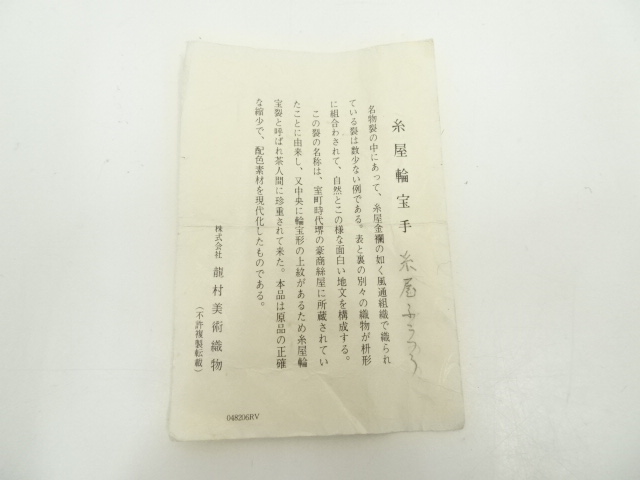 糸屋輪宝手 糸屋ふうつう
名物裂の中にあって、糸屋金襴の如く風通組織で織られ
ている裂は数少ない例である。表と裏の別々の織物が枡形
に組合わされて、自然とこの様な面白い地文を構成する。
この裂の名称は、室町時代堺の豪商絲屋に所蔵されてい
たことに由来し、又中央に輪宝形の上紋があるため糸屋輪
宝裂と呼ばれ茶人間に珍重されて来た。本品は原品の正確
な縮少で、配色素材を現代化したものである。
株式会社 龍村美術織物
(不許複製転載)
048206RV